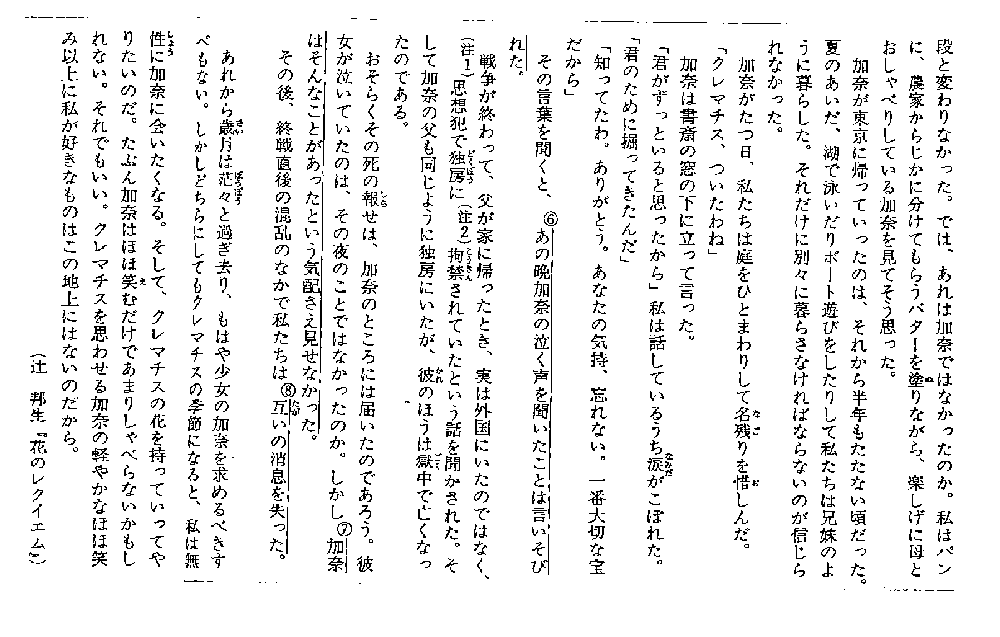 段と変わりなかった。では、あれは加奈ではなかったのか。私はパン
に、農家からじかに分けてもらうバターを塗りながら、楽しげに母と
おしゃべりしている加奈を見てそう思った。
加奈が東京に帰っていったのは、それから半年もたたない頃だった。
夏のあいだ、湖で泳いだりボート遊びをしたりして私たちは兄妹のよ
うに暮らした。それだけに別々に暮らさなければならないのが信じら
れなかった。
加奈がたつ日、私たちは庭をひとまわりして名残りを惜しんだ。
「クレマチス、ついたわね」
加奈は書斎の窓の下に立って言った。
「君がずっといると思ったから」私は話しているうち涙がこぼれた。
「君のために掘ってきたんだ」
「知ってたわ。ありがとう。あなたの気持、忘れない。一番大切な宝
だから」
その言葉を聞くと、⑥あの晩加奈の泣く声を聞いたことは言いそび
れた。
戦争が終わって、父が家に帰ったとき、実は外国にいたのではなく、
(注1)思想犯で独房に(注2)拘禁されていたという話を聞かされた。そ
して加奈の父も同じように独房にいたが、彼のほうは獄中で亡くなっ
たのである。
おそらくその死の報せは、加奈のところには届いたのであろう。彼
女が泣いていたのは、その夜のことではなかったのか。しかし⑦加奈
はそんなことがあったという気配さえ見せなかった。
その後、終戦直後の混乱のなかで私たちは⑧互いの消息を失った。
あれから歳月は茫々と過ぎ去り、もはや少女の加奈を求めるべきす
べもない。しかしどちらにしてもクレマチスの季節になると、私は無
性に加奈に会いたくなる。そして、クレマチスの花を持っていってや
りたいのだ。たぶん加奈はほほ笑むだけであまりしゃべらないかもし
れない。それでもいい。クレマチスを思わせる加奈の軽やかなほほ笑
み以上に私が好きなものはこの地上にはないのだから。
(辻 邦生『花のレクイエム』)